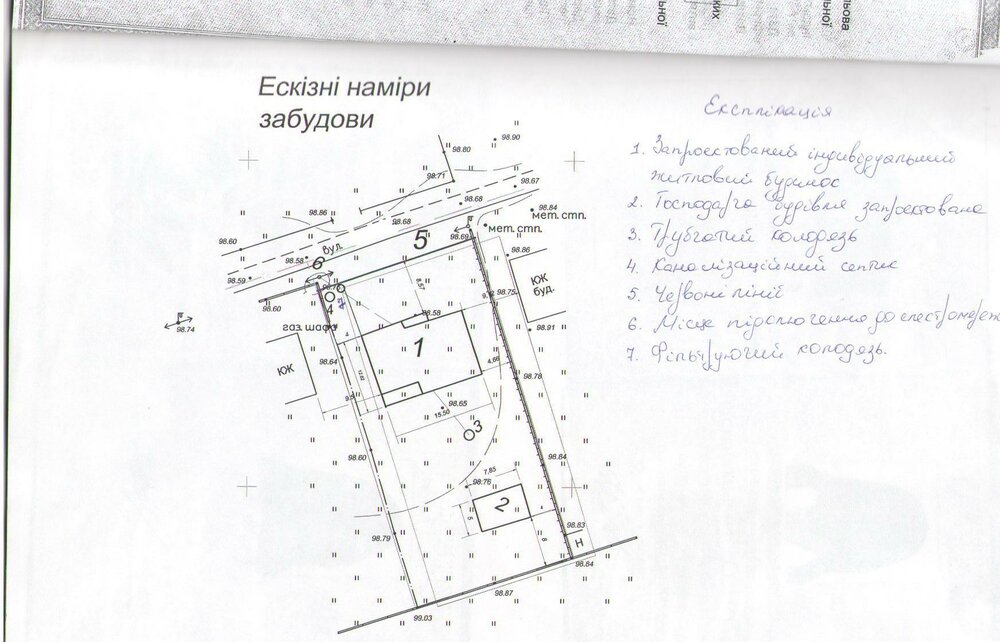 льова
льної
ких
ьної
Ескізні наміри
забудови
Експлікація
1. Запроєктований індивідуальний
житловий будинок
2. Господарча будівля запроєктована
3. Трубчатий колодязь
4. Каналізаційний септик
5. Червоні лінії
6. Місце підключення до електромереж
7. Фільтруючий колодязь.
98.90
98.80
98.71
98.67
98.68
98.84
мет. стп.
98.86
98.68
98.60
98.69
мет. стп.
Вул.
5
98.58
98.86
98.59
6
КЖ
буд.
98.60
4
98.75
98.74
98.58
газ. шафа
98.91
1
98.64
4,66
КЖ
98.78
98.65
15,50
3
98.60
98.84
7,85
98.76
2
98.79
98.83
Н
8
98.84
98.87
99.03